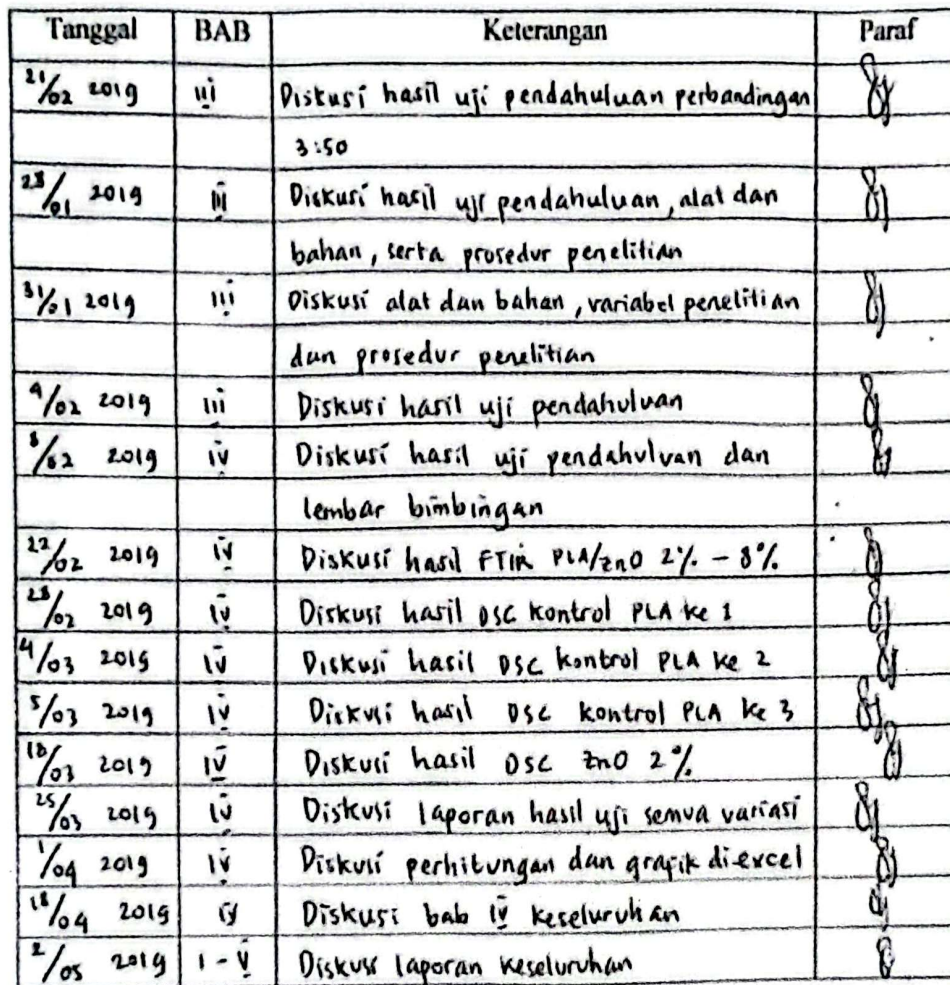 Tanggal BAB Keterangan Paraf
21/02 2019 iii Diskusi hasil uji pendahuluan perbandingan
3:50
28/01 2019 iii Diskusi hasil uji pendahuluan, alat dan
bahan, serta prosedur penelitian
31/01 2019 iii Diskusi alat dan bahan, variabel penelitian
dan prosedur penelitian
4/02 2019 iii Diskusi hasil uji pendahuluan
8/02 2019 iv Diskusi hasil uji pendahuluan dan
lembar bimbingan
22/02 2019 iv Diskusi hasil FTIR PLA/ZnO 2% - 8%
28/02 2019 iv Diskusi hasil DSC kontrol PLA ke 1
4/03 2019 iv Diskusi hasil DSC kontrol PLA ke 2
5/03 2019 iv Diskusi hasil DSC kontrol PLA ke 3
18/03 2019 iv Diskusi hasil DSC ZnO 2%
25/03 2019 iv Diskusi laporan hasil uji semua variasi
1/04 2019 iv Diskusi perhitungan dan grafik di excel
18/04 2019 iv Diskusi bab iv keseluruhan
2/05 2019 I - V Diskusi laporan keseluruhan